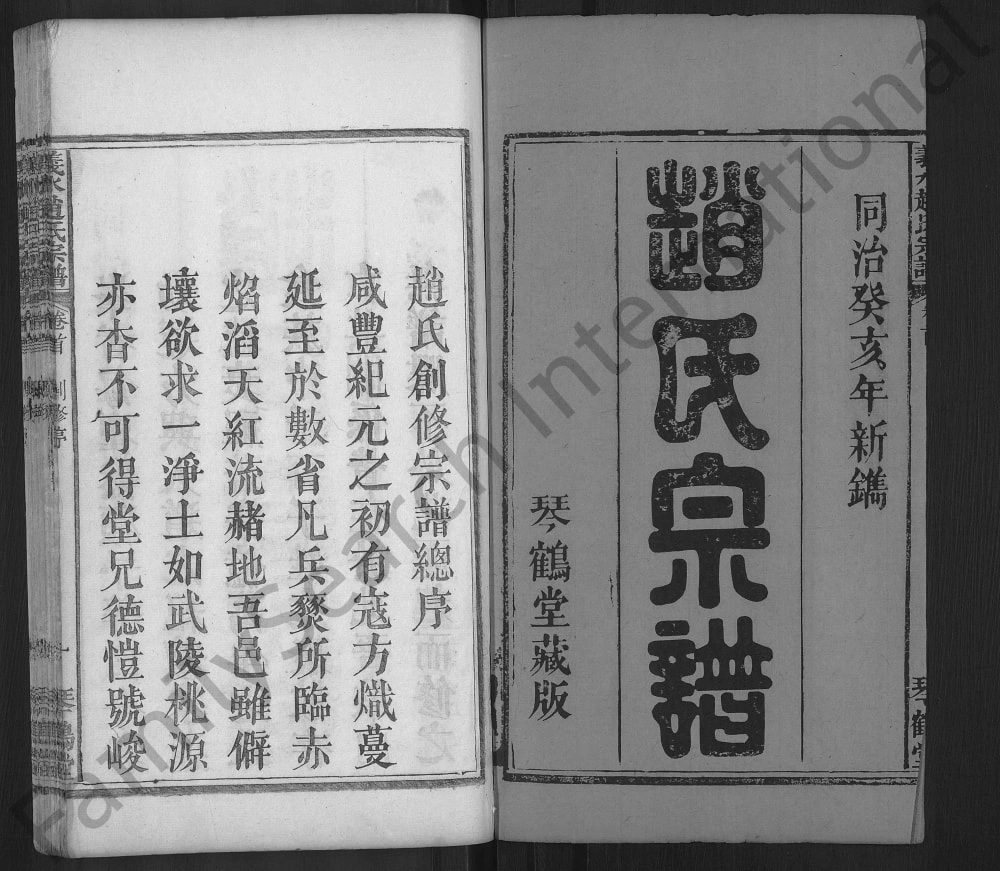 同治癸亥年新鐫
趙氏宗譜
琴鶴堂藏版
義水趙氏宗譜
琴鶴堂
趙氏創修宗譜總序
咸豐紀元之初有寇方熾蔓
延至於數省凡兵燹所臨赤
焰滔天紅流赭地吾邑雖僻
壤欲求一淨土如武陵桃源
亦杳不可得堂兄德愷號峻
義水趙氏宗譜
卷首
創修序
一
琴鶴堂
FamilySearch International